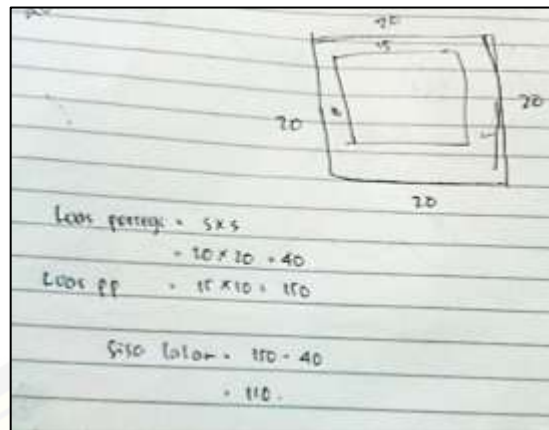 20
15
20
20
20
Luas persegi = s x s
= 20 x 20 = 40
Luas pp = 15 x 10 = 150
Sisa lahan = 150 - 40
= 110.